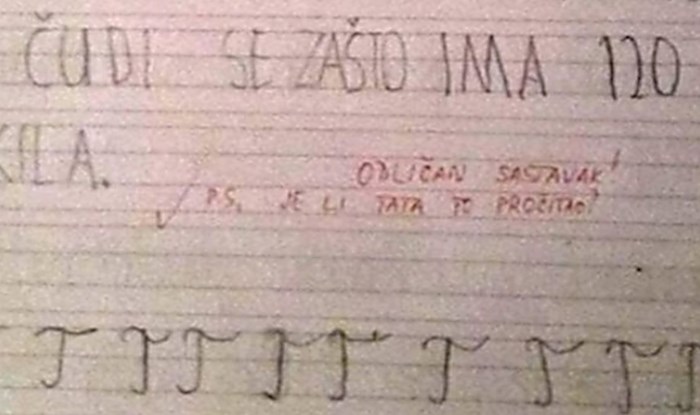 ČUDI SE ZAŠTO IMA 120
KILA.
ODLIČAN SASTAVAK!
P.S. JE LI TATA TO PROČITAO?
T T T T T T T T T